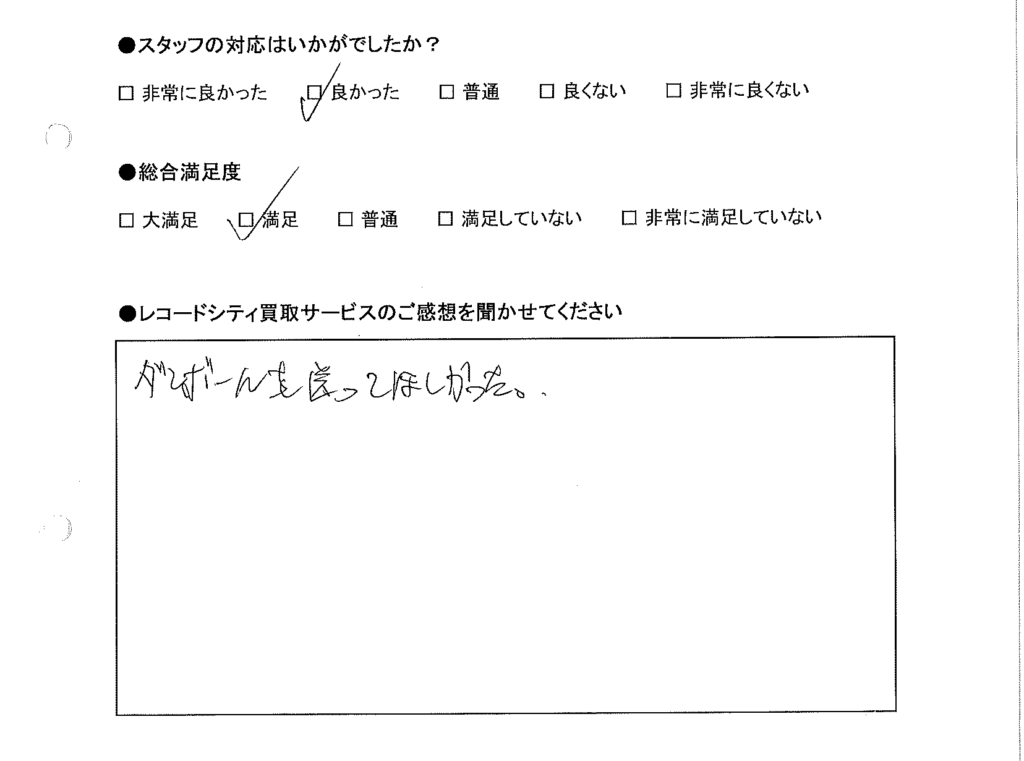 ●スタッフの対応はいかがでしたか？
□ 非常に良かった □ 良かった □ 普通 □ 良くない □ 非常に良くない
●総合満足度
□ 大満足 □ 満足 □ 普通 □ 満足していない □ 非常に満足していない
●レコードシティ買取サービスのご感想を聞かせてください
ダンボールを送ってほしかった。